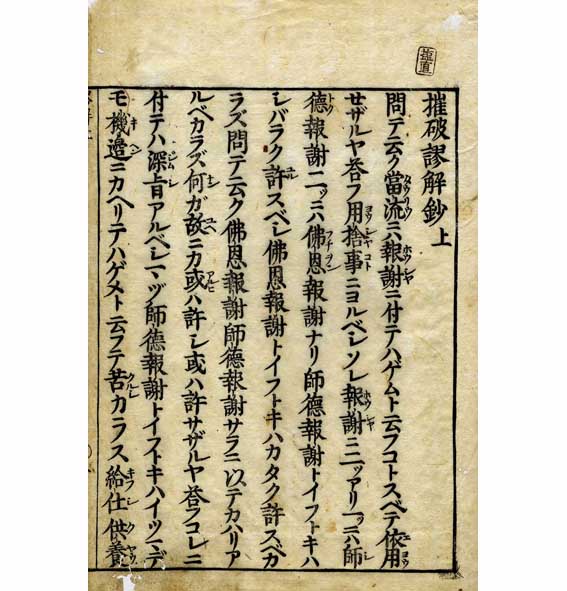 摧破謬解鈔上
問テ云ク當流ニハ報謝ニ付テハゲムト云フコトスベテ依用
セザルヤ答フ用捨事ニヨルベシソレ報謝ニ二ツアリ一ツニハ師
德報謝二ツニハ佛恩報謝ナリ師德報謝トイフトキハ
シバラク許スベシ佛恩報謝トイフトキハカタク許スベカ
ラズ問テ云ク佛恩報謝師德報謝サラニ以テカハリア
ルベカラズ何ガ故ニカ或ハ許シ或ハ許サザルヤ答フコレニ
付テハ深旨アルベシマヅ師德報謝トイフトキハイツマデ
モ機邊ニカヘリテハゲメト云フテ苦カラス給仕供養